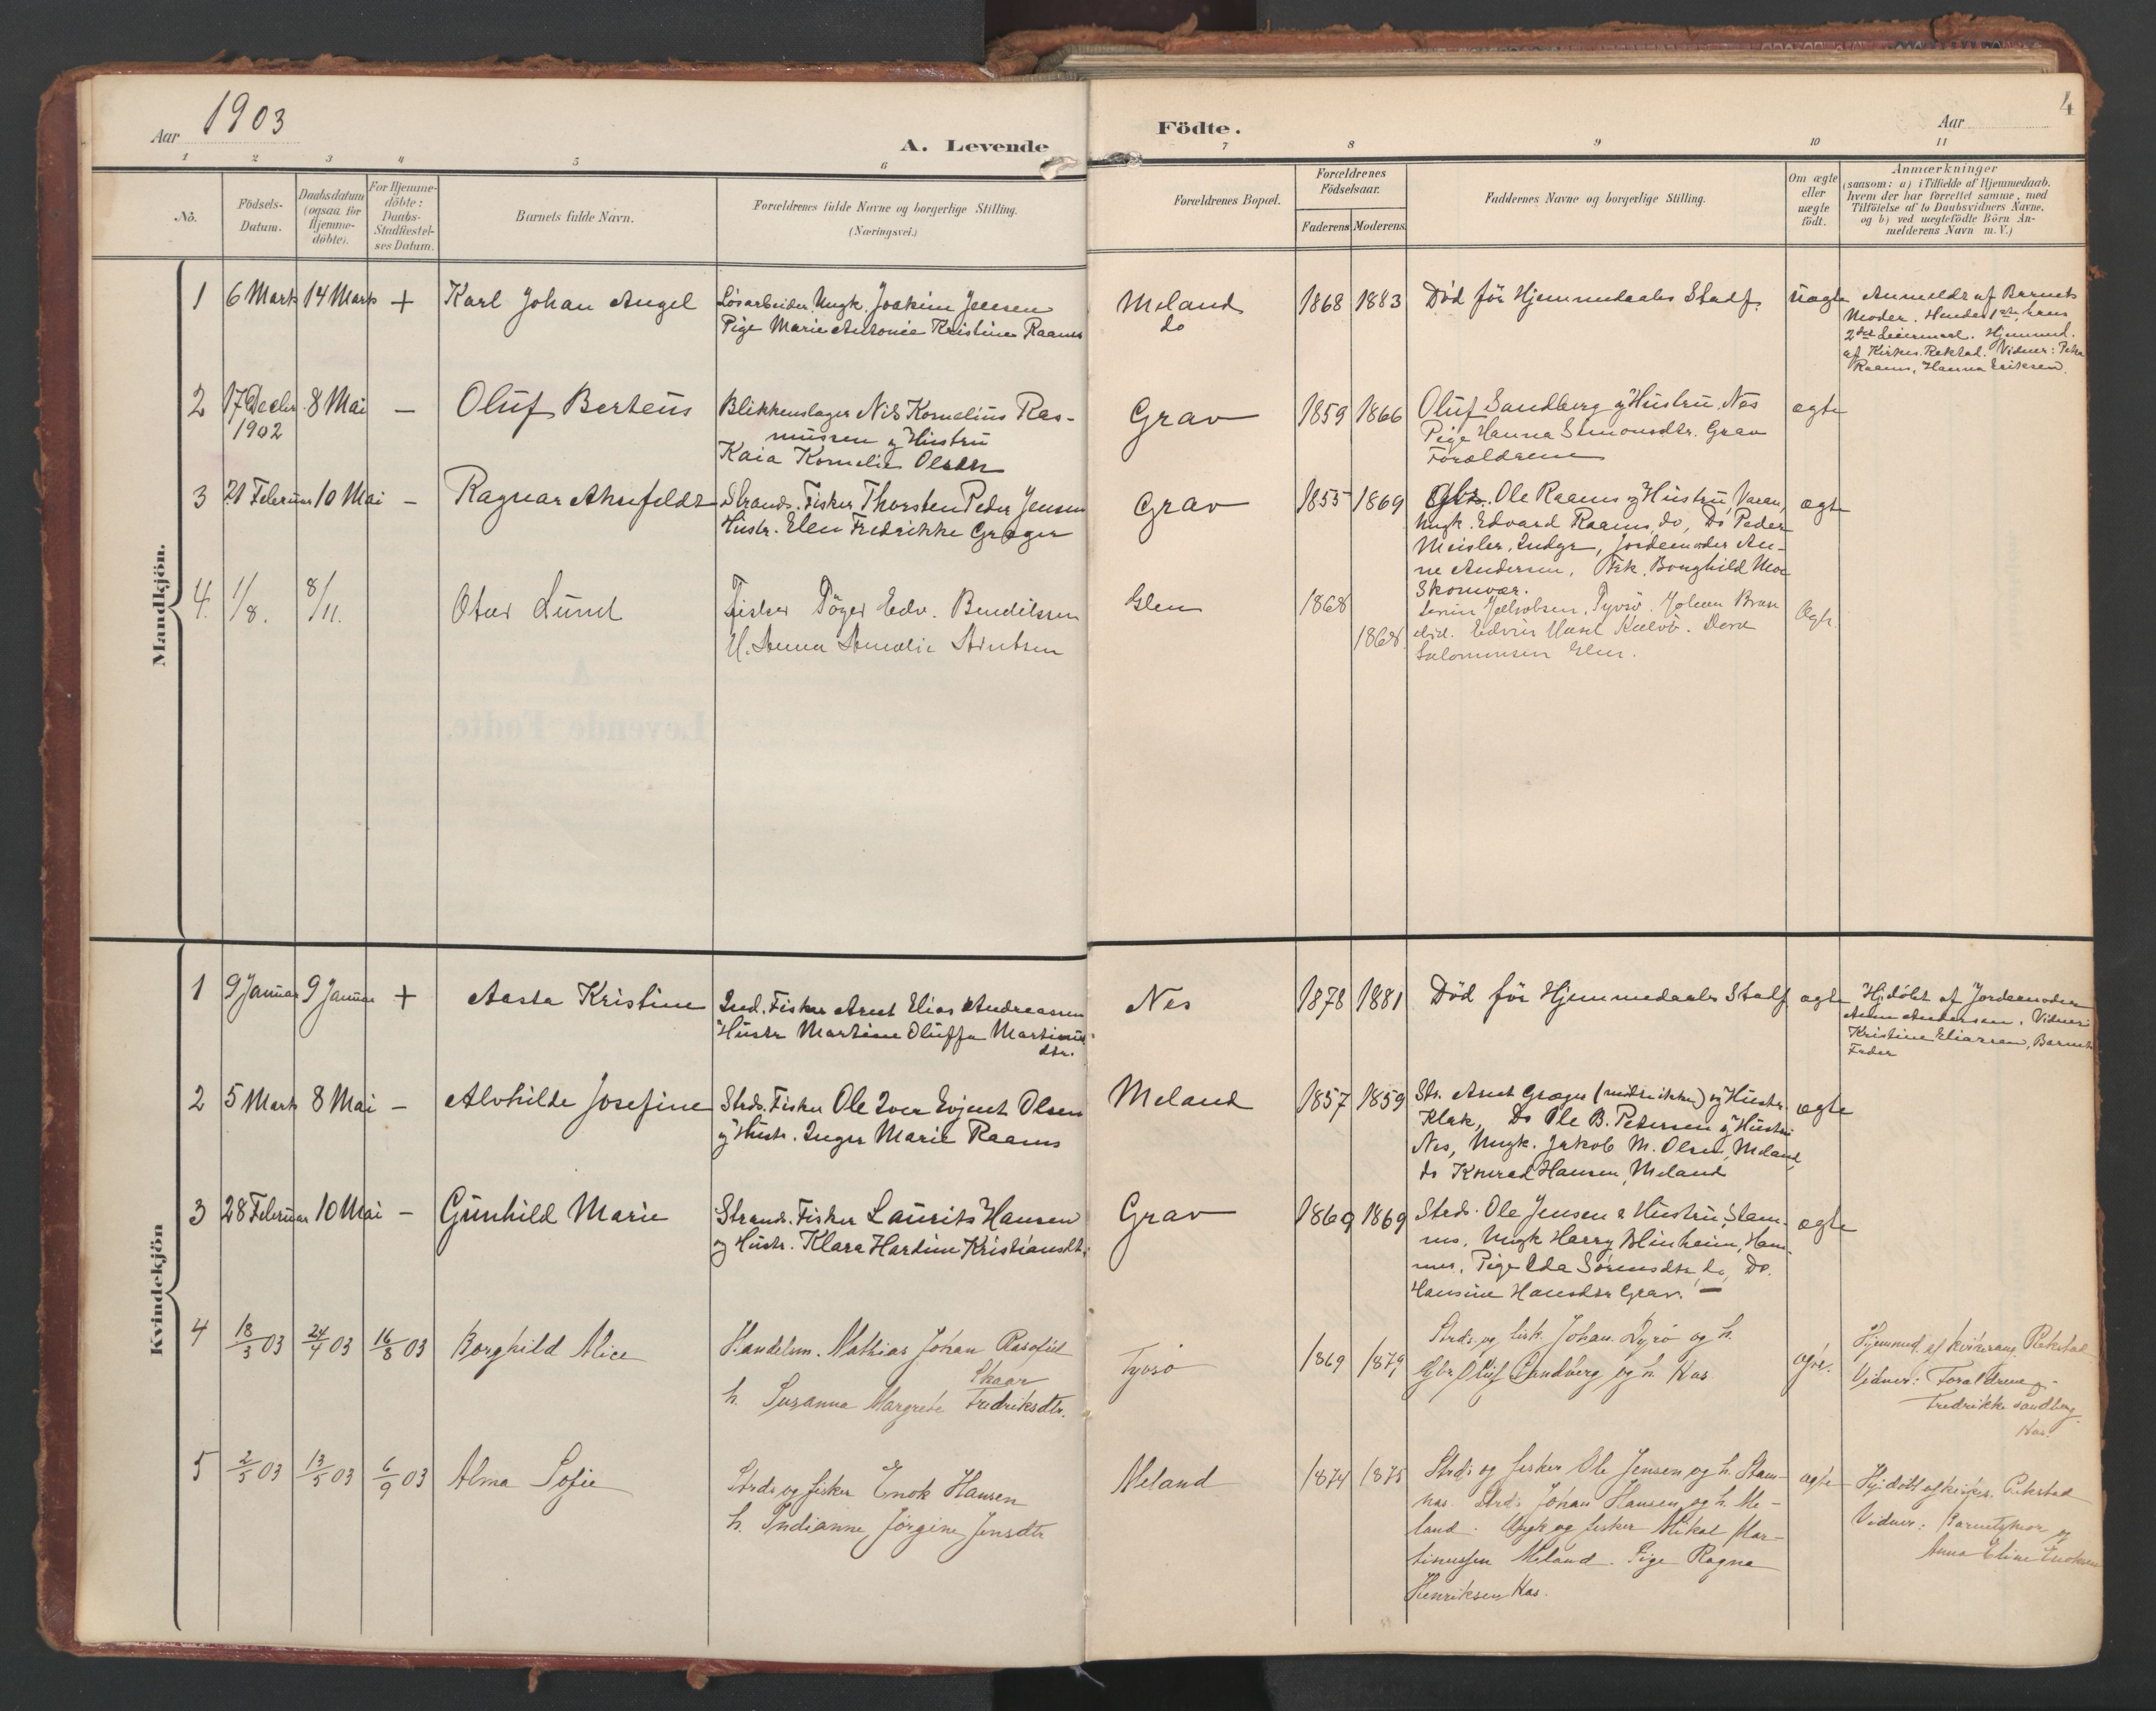 1903
Aar
A. Levende
Födte.
Aar
4
1 2 3 4 5 6 7 8 9 10 11
No.
Födsels-
Datum.
Daabsdatum
(ogsaa for
Hjemme-
döbte).
For Hjemme-
döbte:
Daabs-
Stadfæstel-
ses Datum.
Barnets fulde Navn.
Forældrenes fulde Navne og borgerlige Stilling.
(Næringsvei.)
Forældrenes Bopæl.
Forældrenes
Födselsaar.
Faderens Moderens
Faddernes Navne og borgerlige Stilling.
Om ægte
eller
uægte
födt.
Anmærkninger
(saasom: a) i Tilfælde af Hjemmedaab.
hvem der har forrettet samme, med
Tilföielse af to Daabsvidners Navne,
og b) ved uægtefödte Börn An-
melderens Navn m. V.)
Mandkjön.
1 6 Marts 14 Marts + Karl Johan Angel
Lösarbeider Ungk. Joakim Jensen
Pige Marie Antonie Kristine Raams
Meland
do
1868 1883
Död för Hjemmedaabs Stadf.
uægte
Anmeldt af Barnets
Moder. Hendes 1ste, hans
2det Leiermaal. Hjemmed.
af Kirkes. Rekstad. Vidner: Petra
Raams, Hanna Eriksen.
2 17 Decbr. 8 Mai -
1902
Oluf Berteus
Blikkenslager Nils Kornelius Ras-
mussen og Hustru
Kaia Kornelia Olsdtr
Grav
1859 1866
Oluf Sandberg og Hustru, Nes
Pige Hanna Simonsdtr. Grav
Forældrene
ægte
3 21 Februar 10 Mai - Ragnar Ahnfeldt
Strands. Fisker Thorsten Peder Jensen
Hustr. Elen Fredrikke Grøger
Grav
1855 1869
Gbr. Ole Raams og Hustru, Varan,
Ungk. Edvard Raams, do, Do Peder
Meisler, Indyr, Jordemoder An-
ne Andersen, Frk. Borghild Moe
Skomvær.
ægte
4. 1/8. 8/11. Otar Lund
Fisker Töger Edv. Bendiksen
H. Anna Amalie Arntsen
Glen
1868
1868
Jakobsen, Tyvsö. Johan
Edvin
Salomonsen Glen.
Ægte.
Kvindekjön
1 9 Januar 9 Januar + Aasta Kristine
Ind. Fisker Arnt Elias Andreassen
Hustr Martine Oluffa Martinus
dtr.
Nes
1878 1881
Död för Hjemmedaabs Stadf.
ægte
Hjdöbt af Jordemoder
Anne Andersen. Vidner:
Kristine Eliassen, Barnets
Fader
2 5 Marts 8 Mai - Alvhilde Josefine
Strds. Fisker Ole Iver Evjent Olsen
og Hustr. Inger Marie Raams
Meland
1857 1859
Str. Arnt Grøger (mötte ikke) og Hustr.
Klak, Do Ole B. Petersen og Hustru
Nes, Ungk. Jakob M. Olsen, Meland,
do Konrad Hansen, Meland
ægte
3 28 Februar 10 Mai - Gunhild Marie
Strands. Fisker Laurits Hansen
og Hustr. Klara Hardine Kristiansdtr.
Grav
1869 1869
Strds. Ole Jensen & Hustru, Stam-
nes, Ungk Harry Blinheim, Ham-
mer, Pige Ida Sörensdtr do, Do.
Hansine Hansdtr Grav. -
ægte
4 18/3 03 24/4 03 16/8 03 Borghild Alice
Handelsm. Mathias Johan
Skaar
h. Susanna Margrete Fredriksdtr.
Tyvsö
1869 1879
Strds. og fisk. Johan Dyrö og h.
Gbr. Oluf Sandberg og h. Kas.
ægte.
Hjemmed. af kirkesang. Rekstad
Vidner: Forældrene og
Fredrikke Sandberg
Kas.
5 2/5 03 13/5 03 6/9 03 Alma Sofie
Strds og fisker Enok Hansen
h. Indianne Jörgine Jensdtr
Meland
1874 1875
Strds og fisker Ole Jensen og h. Stam-
nas. Strds Johan Hansen og h. Me-
land. Ungk og fisker Mikal Mar-
tinussen Meland. Pige Ragna
Henriksen, Kas.
ægte
Hjdöbt af kirkes. Rekstad
Vidner: Barnets mor og
Anna Eline Enoksen